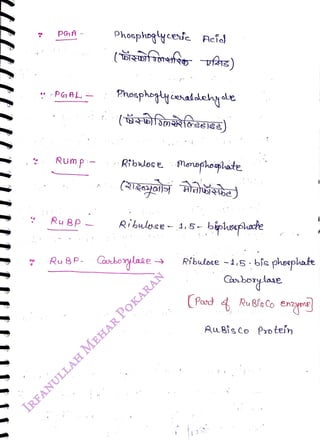 PGA - Phosphoglyceric Acid
PGAL - Phosphoglyceraldehyde
RUMP - Ribulose Monophosphate
RuBP - Ribulose - 1,5 - biphosphate
RuBP- Carboxylase → Ribulose -1,5 - bis phosphate
Carboxylase
[Part of RuBisCo enzyme]
RuBisCo Protein
IRFANULLAH MEHAR POKARAN